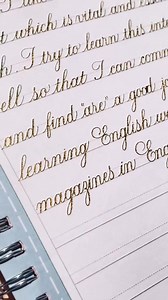 t which is vital and
h. I try to learn this
ell so that I can
and find "are" a good
learning English
magazines in